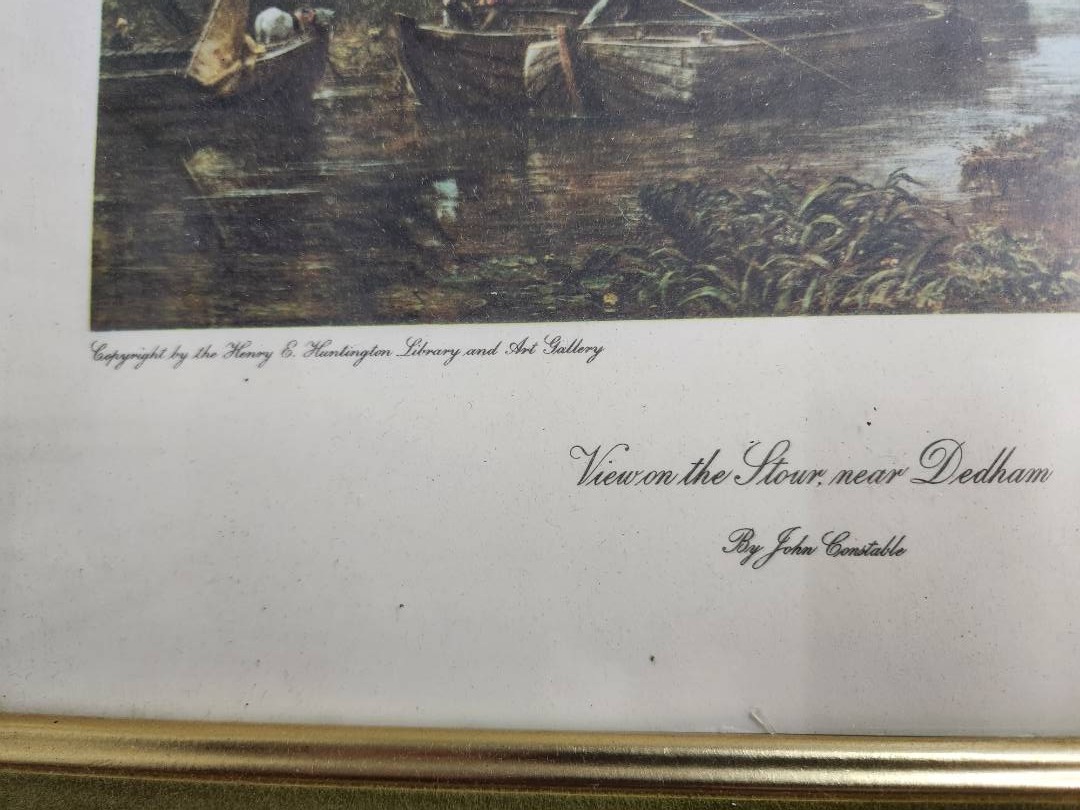 Copyright by the Henry E. Huntington Library and Art Gallery
View on the Stour, near Dedham
By John Constable